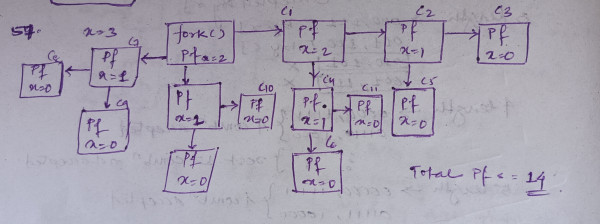 57.
x=3
C1
C2
C3
fork()
Pf x=2
Pf
x=2
Pf
x=1
Pf
x=0
C7
Pf
x=1
C8
Pf
x=0
C9
Pf
x=0
Pf
x=1
C10
Pf
x=0
C4
Pf
x=1
C11
Pf
x=0
C5
Pf
x=0
Pf
x=0
C6
Pf
x=0
Total Pf c = 14